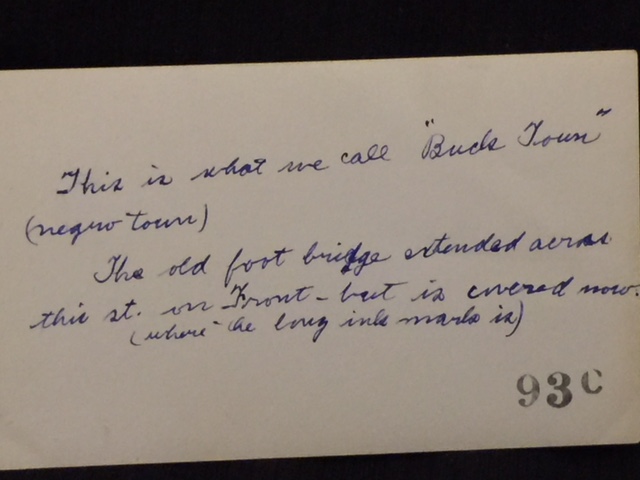 This is what we call "Buck Town"
(negro town)
The old foot bridge extended across
this st. on Front - but is covered now.
(where the long ink mark is)
93C